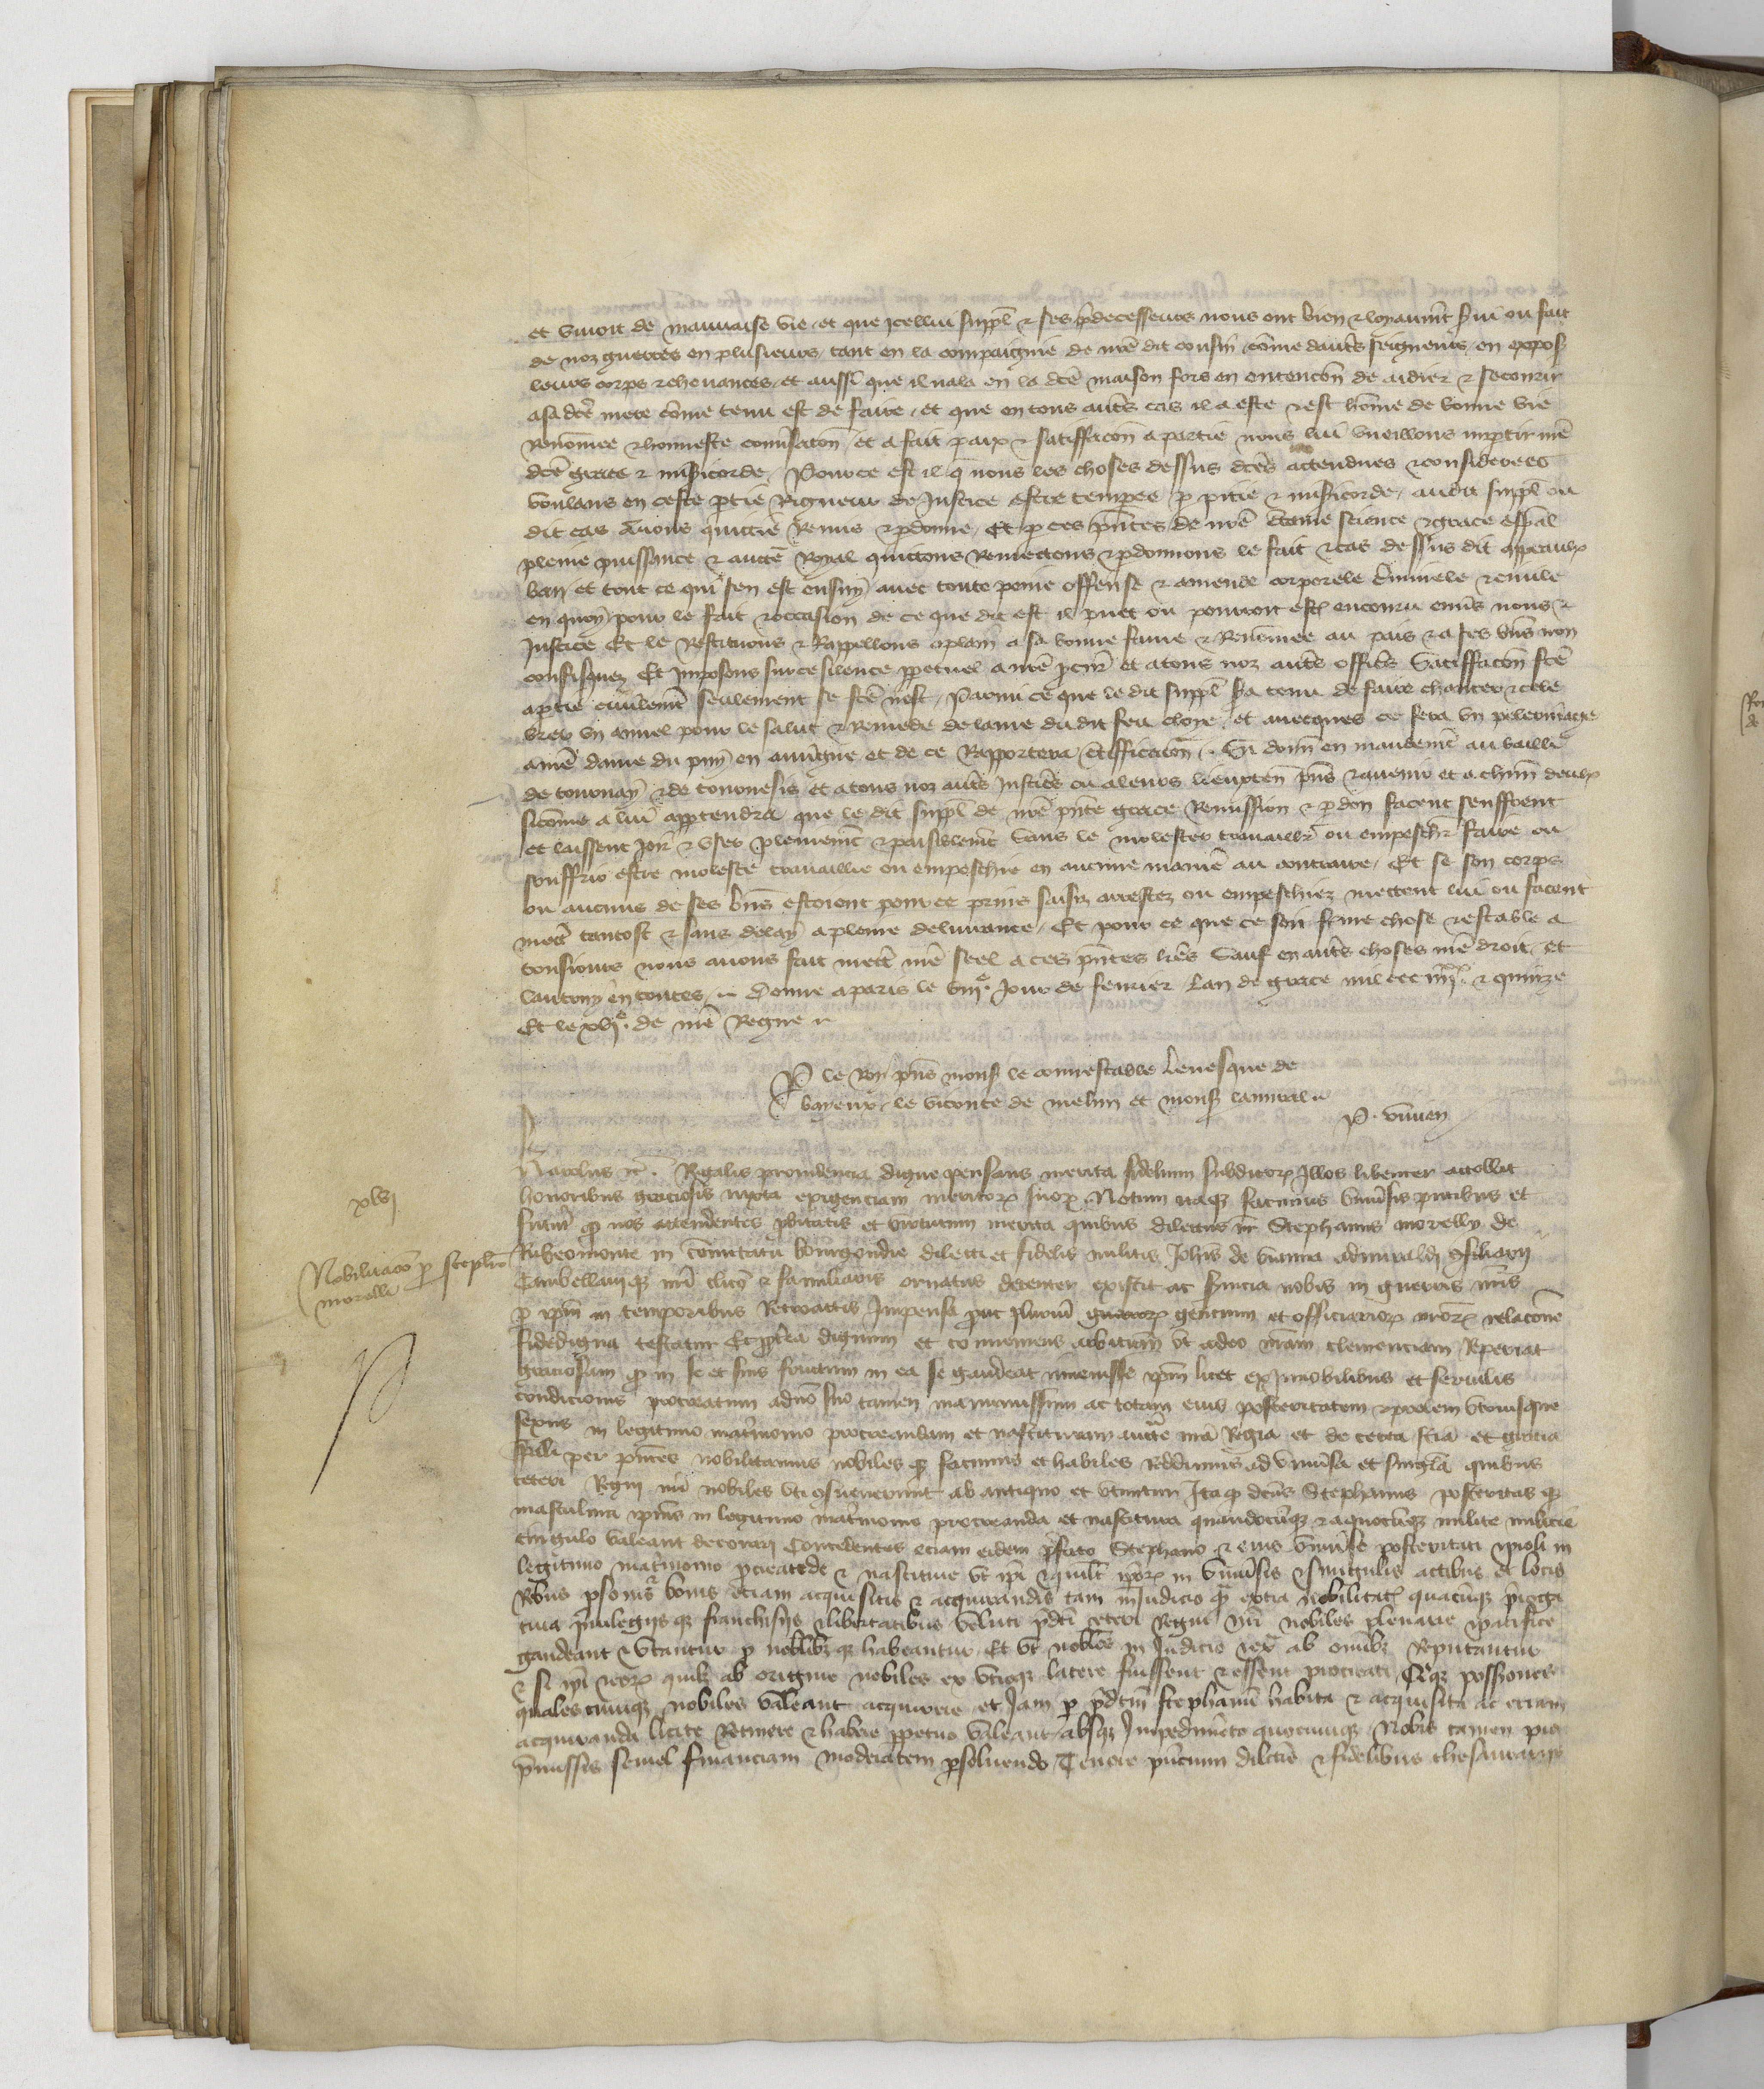 et vivoit de mauvaise vie et que icellui suppl et ses predecesseurs nous ont bien & loyaumt sui ou fait
de noz guerres en plusieurs tant en la compaignie de nre dit cousin come dauts seigneurs en expos
leurs corps & chevances et aussi que il nala en la dce maison fors en entencon de aidier & secourir
a sa dce mere come tenu est de faire et que en tous auts cas il a este & est home de bonne vie
Renomee & honneste convsacon et a fait paix & satiffacon a partie nous lui vueillons impartir nre
dce grace & misicorde Pource est il q nous les choses dessus dces attendues & considerees
voulans en ceste ptie Rigueur de Justice estre tempee p pitie & misicorde audit suppl ou
dit cas Avons quictie Remis & pdonne Et p ces pntes de nre ctaine science & grace espal
pleine puissance & aucte Royal quictons Remectons & pdonnons le fait & cas dessus dit appeaulx
ban et tout ce qui sen est ensuy avec toute peine offense & amende corporele criminele & civile
en quoy pour le fait & occasion de ce que dit est il puet ou pourroit est encouru envs nous &
Justice Et le Restituons & Rappellons a plain a sa bonne fame & Renomee au pais & a ses bns non
confisquez Et Imposons sur ce silence ppetuel a nre pcur et a tous noz auts offics Satiffacon fce
a ptie civilemt seulement se fce nest Parmi ce que le dit suppl sa tenu de faire chanter & cele
brer un annel pour le salut & Remede de lame du dit feu et avecques ce fera un pelerinage
a nre dame du puy en auvgne et de ce Rapportera ctifficacon Si donn en mandemt au bailli
de tournay & de tournesis et a tous noz auts Justics ou a leurs lieuxten pns & avenir et a chun deulx
sicome a lui apptendra que le dit suppl de nre pnte grace Remission & pdon facent seuffrent
et laissent Joir & user plenemt & paisiblemt Sans le molester travaillr ou empeschr faire ou
souffrir estre moleste travaillie ou empeschie en aucune manie au contraire Et se son corps
ou aucuns de ses bns estoient pour ce prins saisiz arrestez ou empeschiez mettent lui ou facent
mett tantost & sans delay a pleine delivrance Et pour ce que ce soit ferme chose & estable a
tousiours nous avons fait mett nre seel a ces pntes lres Sauf en auts choses nre droit et
lautruy en toutes Donne a paris le viije Jour de fevrier Lan de grace mil ccc iiijxx & quinze
Et le xvje de nre Regne
P le Roy pns mons le connestable Levesque de
bayeux le viconte de melun et mons lamiral
P. vivien
xlvj
Nobilitaco p Stepho
morelli
Karolus &c. Regalis providencia digne pensans merita fidelium subditor Illos libenter attollit
honoribus graciosis iuxta exigenciam meritor suor Notum itaq facimus univsis pntibus et
futur q nos attendentes pbitatis et virtutum merita quibus dilectus nr Stephanus morelly de
Rubeomonte in comitatu bourgondie dilecti et fidelis militis Johis de vianna admiraldi consiliarij
Cambellaniq nri clicus & familiaris ornatus decenter existit ac svicia nobis in guerris nris
p ipm in temporibus Retroactis Impensa put plurim guerror gencium et officiarior nror relacone
fidedigna testatur Et pptea dignum et conveniens arbitram ut adeo nram clemenciam Reperiat
graciosam q in se et suis fructum in ea se gaudeat invenisse ipm licet ex Innobilibus et servilis
condicionis procreatum a dno suo tamen manumissum ac totam eius posteritatem & prolem utriusque
sexus in legitimo matrimonio procreandam et nascituram aucte nra Regia et de certa scia et gracia
spali per pntes nobilitamus nobiles q facimus et habiles Reddimus ad univsa et singula quibus
ceteri Regni nri nobiles uti consueverunt ab antiquo et utuntur Ita q dcus Stephanus posteritas q
masculina ipius in legitimo matrimonio procreanda et nascitura quandocunq & a quocunq milite milicie
cingulo valeant decorari Concedentes eciam eidem pfato Stephano & eius univse posteritati & proli in
legitimo matrimonio pcreate & nasciture ut ipi & quilt ipor in univsis & singulis actibus et locis
Rebus psonis bonis eciam acquisitis & acquirendis tam in Judicio q extra nobilitat quacunq proga
tiva privilegijs q franchisijs & libertatibus veluti pdti ceteri Regni nri nobiles plenarie & pacifice
gaudeant & utantur p nobilibz q habeantur Et ut nobiles in Judicio & ex ab omibz Reputantur
& si ipi & eor quilt ab origine nobiles ex utroq latere fuissent & essent procreati Resq possiones
qualescunq nobiles valeant acquirere et Jam p pdtum stephanu habita & acquisita ac eciam
acquirenda licite Retinere & habere ppetuo valeant absq Impedimeto quocunq Nobis tamen pro
pmissis semel financiam moderatam psolvendo Tenore pncium dilctis & fidelibus thesaurarijs